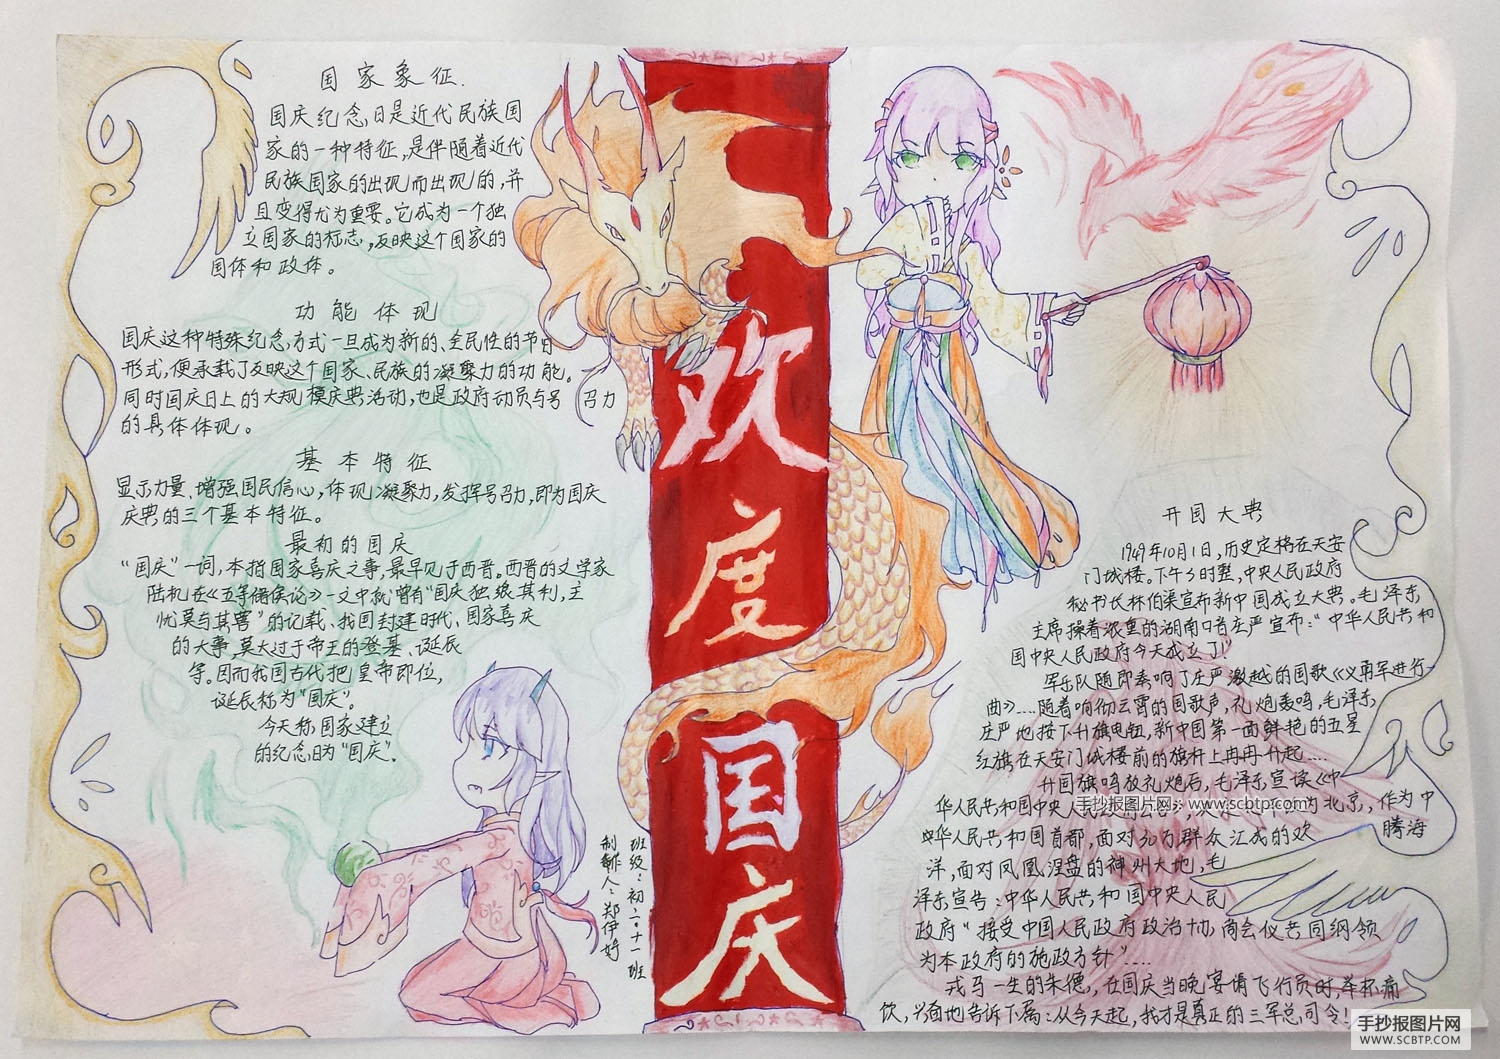 国家象征.
国庆纪念日是近代民族国
家的一种特征,是伴随着近代
民族国家的出现而出现的,并
且变得尤为重要。它成为一个独
立国家的标志,反映这个国家的
国体和政体。
功能体现
国庆这种特殊纪念方式一旦成为新的、全民性的节日
形式,便承载了反映这个国家、民族的凝聚力的功能。
同时国庆日上的大规模庆典活动,也是政府动员与号召力
的具体体现。
基本特征
显示力量、增强国民信心,体现凝聚力,发挥号召力,即为国庆
庆典的三个基本特征。
最初的国庆
“国庆”一词,本指国家喜庆之事,最早见于西晋。西晋的文学家
陆机在《五等诸侯论》一文中就曾有“国庆独飨其利,主
忧莫与其害”的记载、我国封建时代、国家喜庆
的大事,莫大过于帝王的登基、诞辰
等。因而我国古代把皇帝即位,
诞辰称为“国庆”。
今天称国家建立
的纪念日为“国庆”.
欢度国庆
班级:初二.十一班
制作人:郑伊婷
开国大典
1949年10月1日,历史定格在天安
门城楼。下午3时整,中央人民政府
秘书长林伯渠宣布新中国成立大典。毛泽东
主席操着浓重的湖南口音庄严宣布:“中华人民共和
国中央人民政府今天成立了!”
军乐队随即奏响了庄严激越的国歌《义勇军进行
曲》....随着响彻云霄的国歌声,礼炮轰鸣,毛泽东
庄严地按下升旗电钮,新中国第一面鲜艳的五星
红旗在天安门城楼前的旗杆上冉冉升起....
升国旗鸣放礼炮后,毛泽东宣读《中
华人民共和国中央人民 为北京,作为中
手抄报图片网:www.scbtp.com
中华人民共和国首都,面对30万群众汇成的欢腾海
洋,面对凤凰涅盘的神州大地,毛
泽东宣告:中华人民共和国中央人民
政府“接受中国人民政府政治协商会议共同纲领
为本政府的施政方针”....
戎马一生的朱德,在国庆当晚宴请飞行员时,举杯痛
饮,兴奋地告诉下属:从今天起,我才是真正的三军总司令!
手抄报图片网
WWW.SCBTP.COM